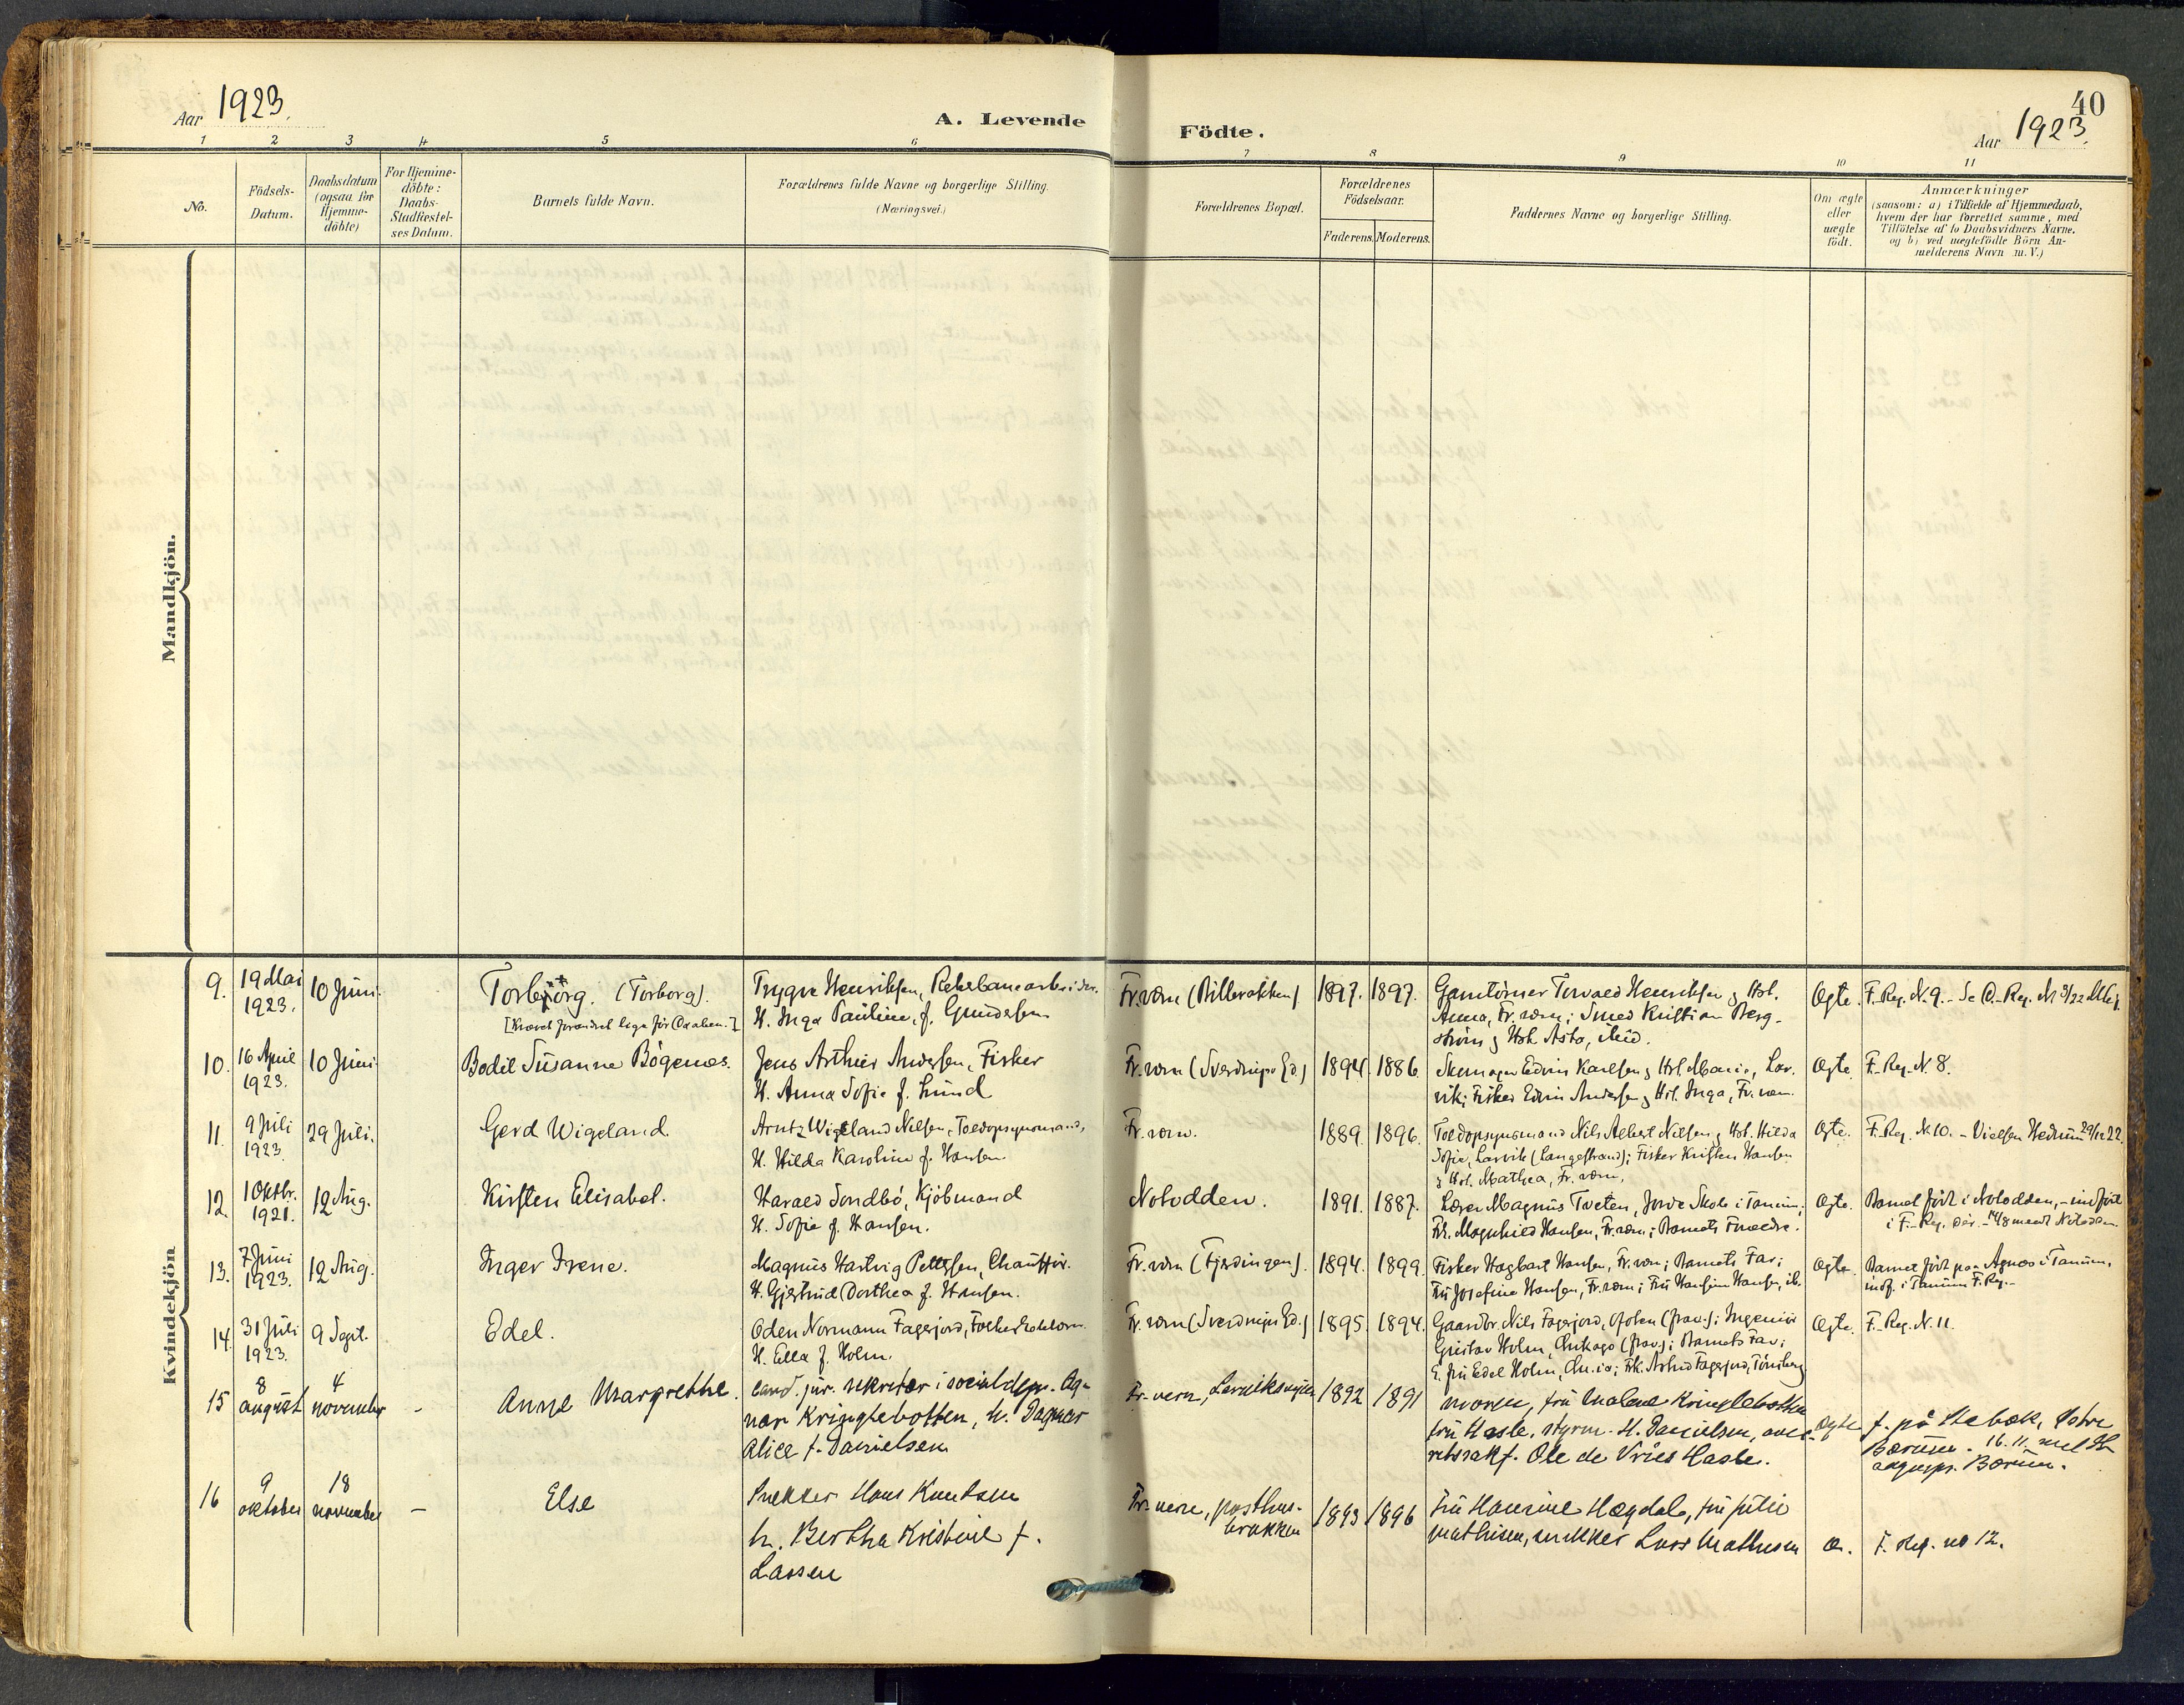 Aar 1923.
A. Levende
Födte.
40
Aar 1923.
1 2 3 4 5 6 7 8 9 10 11
No.
Födsels-
Datum.
Daabsdatum
(ogsaa for
Hjemme-
döbte)
For Hjemme-
döbte:
Daabs-
Stadfæstel-
ses Datum.
Barnets fulde Navn.
Forældrenes fulde Navne og borgerlige Stilling.
(Næringsvei.)
Forældrenes Bopæl.
Forældrenes
Födselsaar.
Faderens. Moderens.
Faddernes Navne og borgerlige Stilling.
Om ægte
eller
uægte
födt.
Anmærkninger
(saasom: a) i Tilfælde af Hjemmedaab,
hvem der har forrettet samme, med
Tilföielse af to Daabsvidners Navne.
og b) ved uægtefödte Börn An-
melderens Navn m. V.)
Mandkjön.
Kvindekjön
9. 19 Mai
1923.
10 Juni.
Torbjörg. (Torborg).
Trygve Henriksen,
H. Inga Pauline, f. Gundersen
Fr.værn
1897. 1897.
Henriksen og Hst.
Anna, Fr.værn; Smed Kristian Berg-
ström og Hst. Asta,
Ægte.
F.-Reg. N. 9.
10. 16 April
1923.
10 Juni.
Bodil Susanne Bögenæs.
Jens Arthur Andersen, Fisker
H. Anna Sofie f. Lund
Fr.værn (Sverdrups Gd.)
1894. 1886.
Edvin Karlsen og Hst. Marie, Lar-
vik; Fisker Edvin Andersen og Hst. Inga, Fr.værn.
Ægte.
F.-Reg. N. 8.
11. 9 Juli
1923.
29 Juli.
Gerd Wigeland.
Arntz Wigeland Nilsen, Toldopsynsmand,
H. Hilda Karoline f. Hansen.
Fr.værn.
1889. 1896.
Toldopsynsmand Nils Albert Nilsen og Hst. Hilda
Sofie, Larvik (Langestrand); Fisker Kristen Hansen
og Hst. Mathea, Fr.værn.
Ægte.
F.-Reg. N. 10. - Vielsen Hedrum
12. 1 Oktbr.
1921.
12 Aug.
Kirsten Elisabet.
Harald Sondbö, Kjöbmand
H. Sofie f. Hansen.
Notodden.
1891. 1887.
Lærer Magnus Tveten, Skole i Tanum;
Frk. Magnhild Hansen, Fr.værn; Barnets Forældre.
Ægte.
Barnet födt i Notodden, - indfört
i F.-Reg. der.
13. 7 Juni
1923.
12 Aug.
Inger Irene.
Magnus Hartvig Pettersen, Chauffør.
H. Gjertrud Dorthea f. Hansen.
Fr.værn (Fjerdingen).
1894. 1899.
Fisker Hagbart Hansen, Fr.værn; Barnets Far;
Fru Josefine Hansen, Fr.værn; Fru Hansine Hansen, ib.
Ægte.
Barnet födt paa Agnæs i Tanum,
indf. i Tanum F.Reg.-
14. 31 Juli
1923.
9 Sept.
Edel.
Oden Normann Fagerjord,
H. Ella f. Holm.
Fr.værn (Sverdrups Gd.)
1895. 1894.
Gaardbr. Nils Fagerjord, Ofoten (frav.); Ingeniör
Gustav Holm, Chikago (frav.); Barnets Far;
Edel Holm, Chr.ia; Frk. Astrid Fagerjord, Tönsberg
Ægte.
F.-Reg. N. 11.
15 8
august
4
november
-
Anne Margrethe.
cand. jur. sekretær i socialdepr. Ag-
nar Kringlebotten, h. Dagmar
Alice f. Danielsen
Fr.-vern, Larviksveien
1892 1891
moren, fru Malene Kringlebotten
fru Hasle, styrm. H. Danielsen, over-
retssakf. Ole de Vries Hasle.
ægte
f. på Stabæk, Vestre
Bærum. 16.11.
Bærum.
16 9
oktober
18
november
-
Else
Snekker Hans Knutsen
h. Bertha Kristine f.
Lassen
Fr-vern, posthus-
brakken
1893 1896
fru Hansine Hægdal, fru Julie
Mathisen, snekker Lars Mathisen
æ.
F. Reg. no 12.